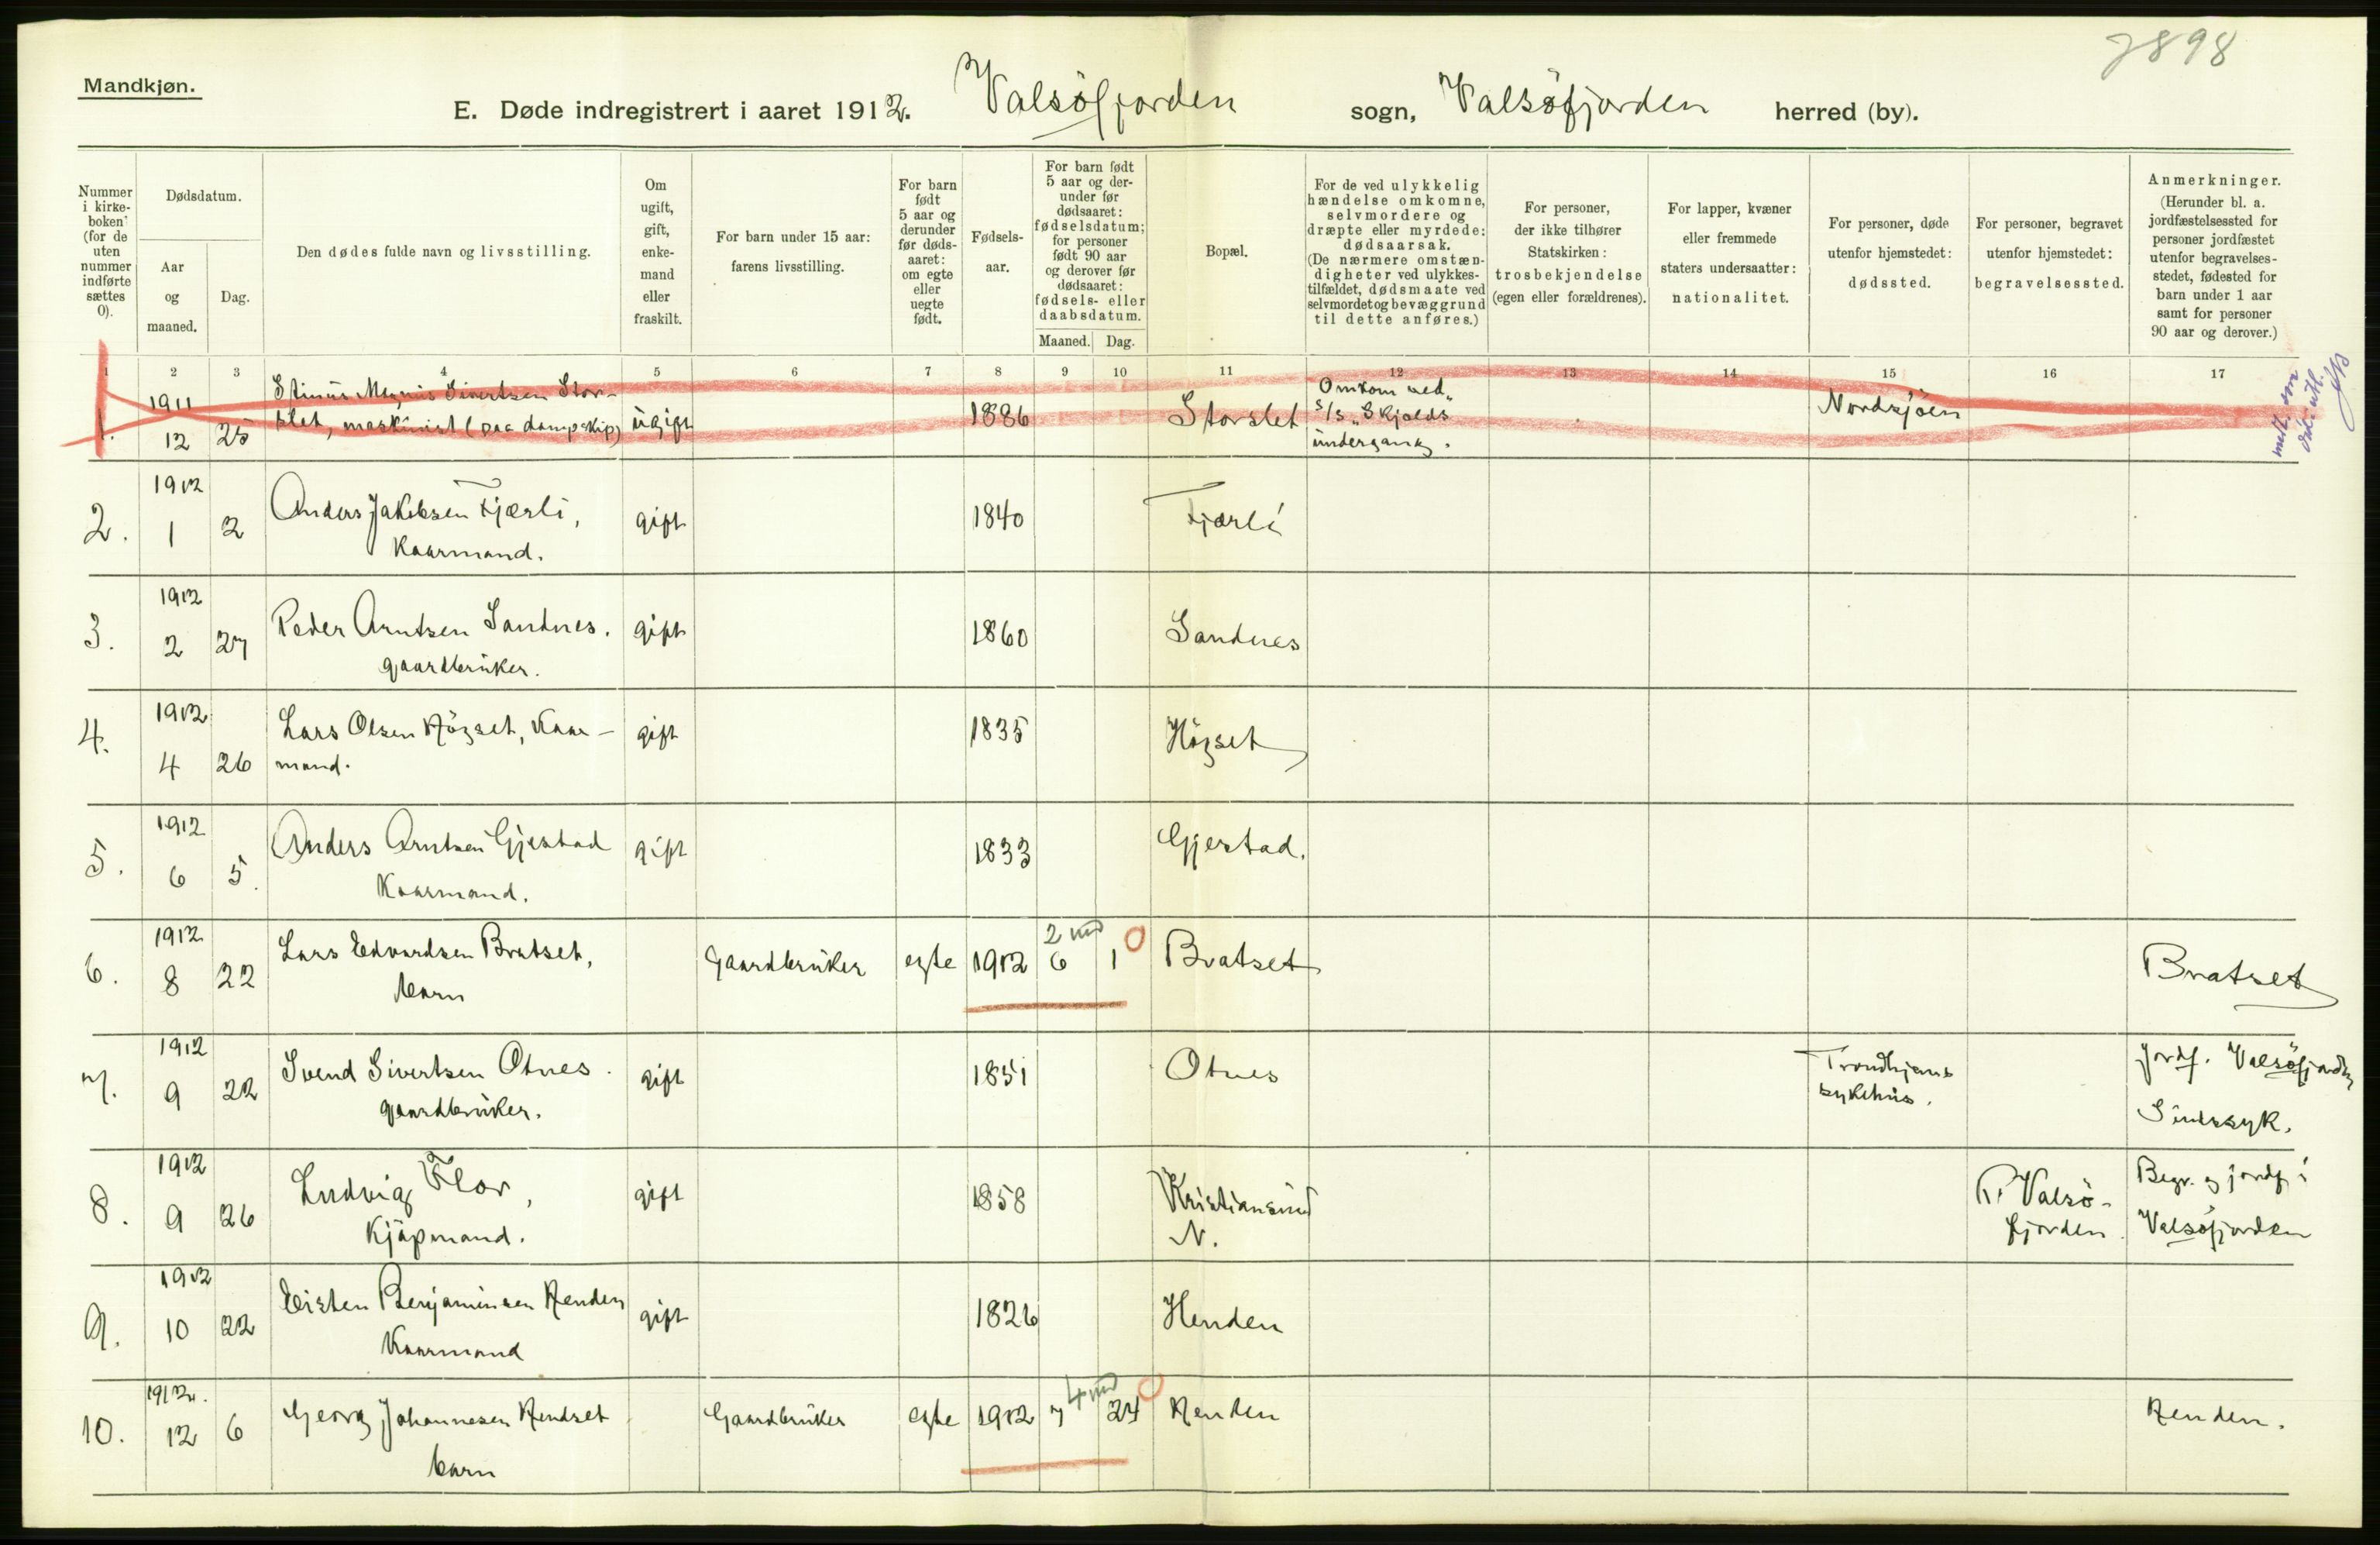 7898
Mandkjøn.
E. Døde indregistrert i aaret 1912. Valsöfjorden sogn, Valsöfjorden herred (by).
Nummer i kirkeboken (for de uten nummer indførte sættes 0).
Dødsdatum.
Aar og maaned.
Dag.
Den dødes fulde navn og livsstilling.
Om ugift, gift, enkemand eller fraskilt.
For barn under 15 aar: farens livsstilling.
For barn født 5 aar og derunder før dødsaaret: om egte eller uegte født.
Fødselsaar.
For barn født 5 aar og derunder før dødsaaret: fødselsdatum; for personer født 90 aar og derover før dødsaaret: fødsels- eller daabsdatum.
Maaned. Dag.
Bopæl.
For de ved ulykkelig hændelse omkomne, selvmordere og dræpte eller myrdede: dødsaarsak. (De nærmere omstændigheter ved ulykkestilfældet, dødsmaate ved selvmordet og bevæggrund til dette anføres.)
For personer, der ikke tilhører Statskirken: trosbekjendelse (egen eller forældrenes).
For lapper, kvæner eller fremmede staters undersaatter: nationalitet.
For personer, døde utenfor hjemstedet: dødssted.
For personer, begravet utenfor hjemstedet: begravelsessted.
Anmerkninger. (Herunder bl. a. jordfæstelsessted for personer jordfæstet utenfor begravelsesstedet, fødested for barn under 1 aar samt for personer 90 aar og derover.)
1 2 3 4 5 6 7 8 9 10 11 12 13 14 15 16 17
1. 1911 12 25 Sivertsen Storslet, maskinist (paa dampskip) ugift 1886 Storslet Omkom ved S/S "Skjolds undergang. Nordsjöen
2. 1912 1 2 Anders Jakobsen Fjærli, Kaarmand. gift 1840 Fjærli
3. 1912 2 27 Peder Arntsen Sandnes. gaardbruker. gift 1860 Sandnes
4. 1912 4 26 Lars Olsen Högset, Kaarmand. gift 1835 Högset
5. 1912 6 5. Anders Arntsen Gjestad Kaarmand. gift 1833 Gjestad.
6. 1912 8 22 Lars Edvardsen Bratset, barn Gaardbruker egte 1912 2 md 6 1 0 Bratset Bratset
7. 1912 9 22 Svend Sivertsen Otnes. gaardbruker. gift 1851 Otnes Trondhjems sykehus. Jordf. Valsöfjorden Sindssyk.
8. 1912 9 26 Ludvig Flor, Kjöpmand. gift 1858 Kristiansund N. Valsöfjorden. Begr. og jordf. i Valsöfjorden
9. 1912 10 22 Eisten Benjaminsen Henden Kaarmand gift 1826 Henden
10. 1912. 12 6 Georg Johannesen Hendset barn Gaardbruker egte 1912 4 md 7 24 0 Henden Henden.